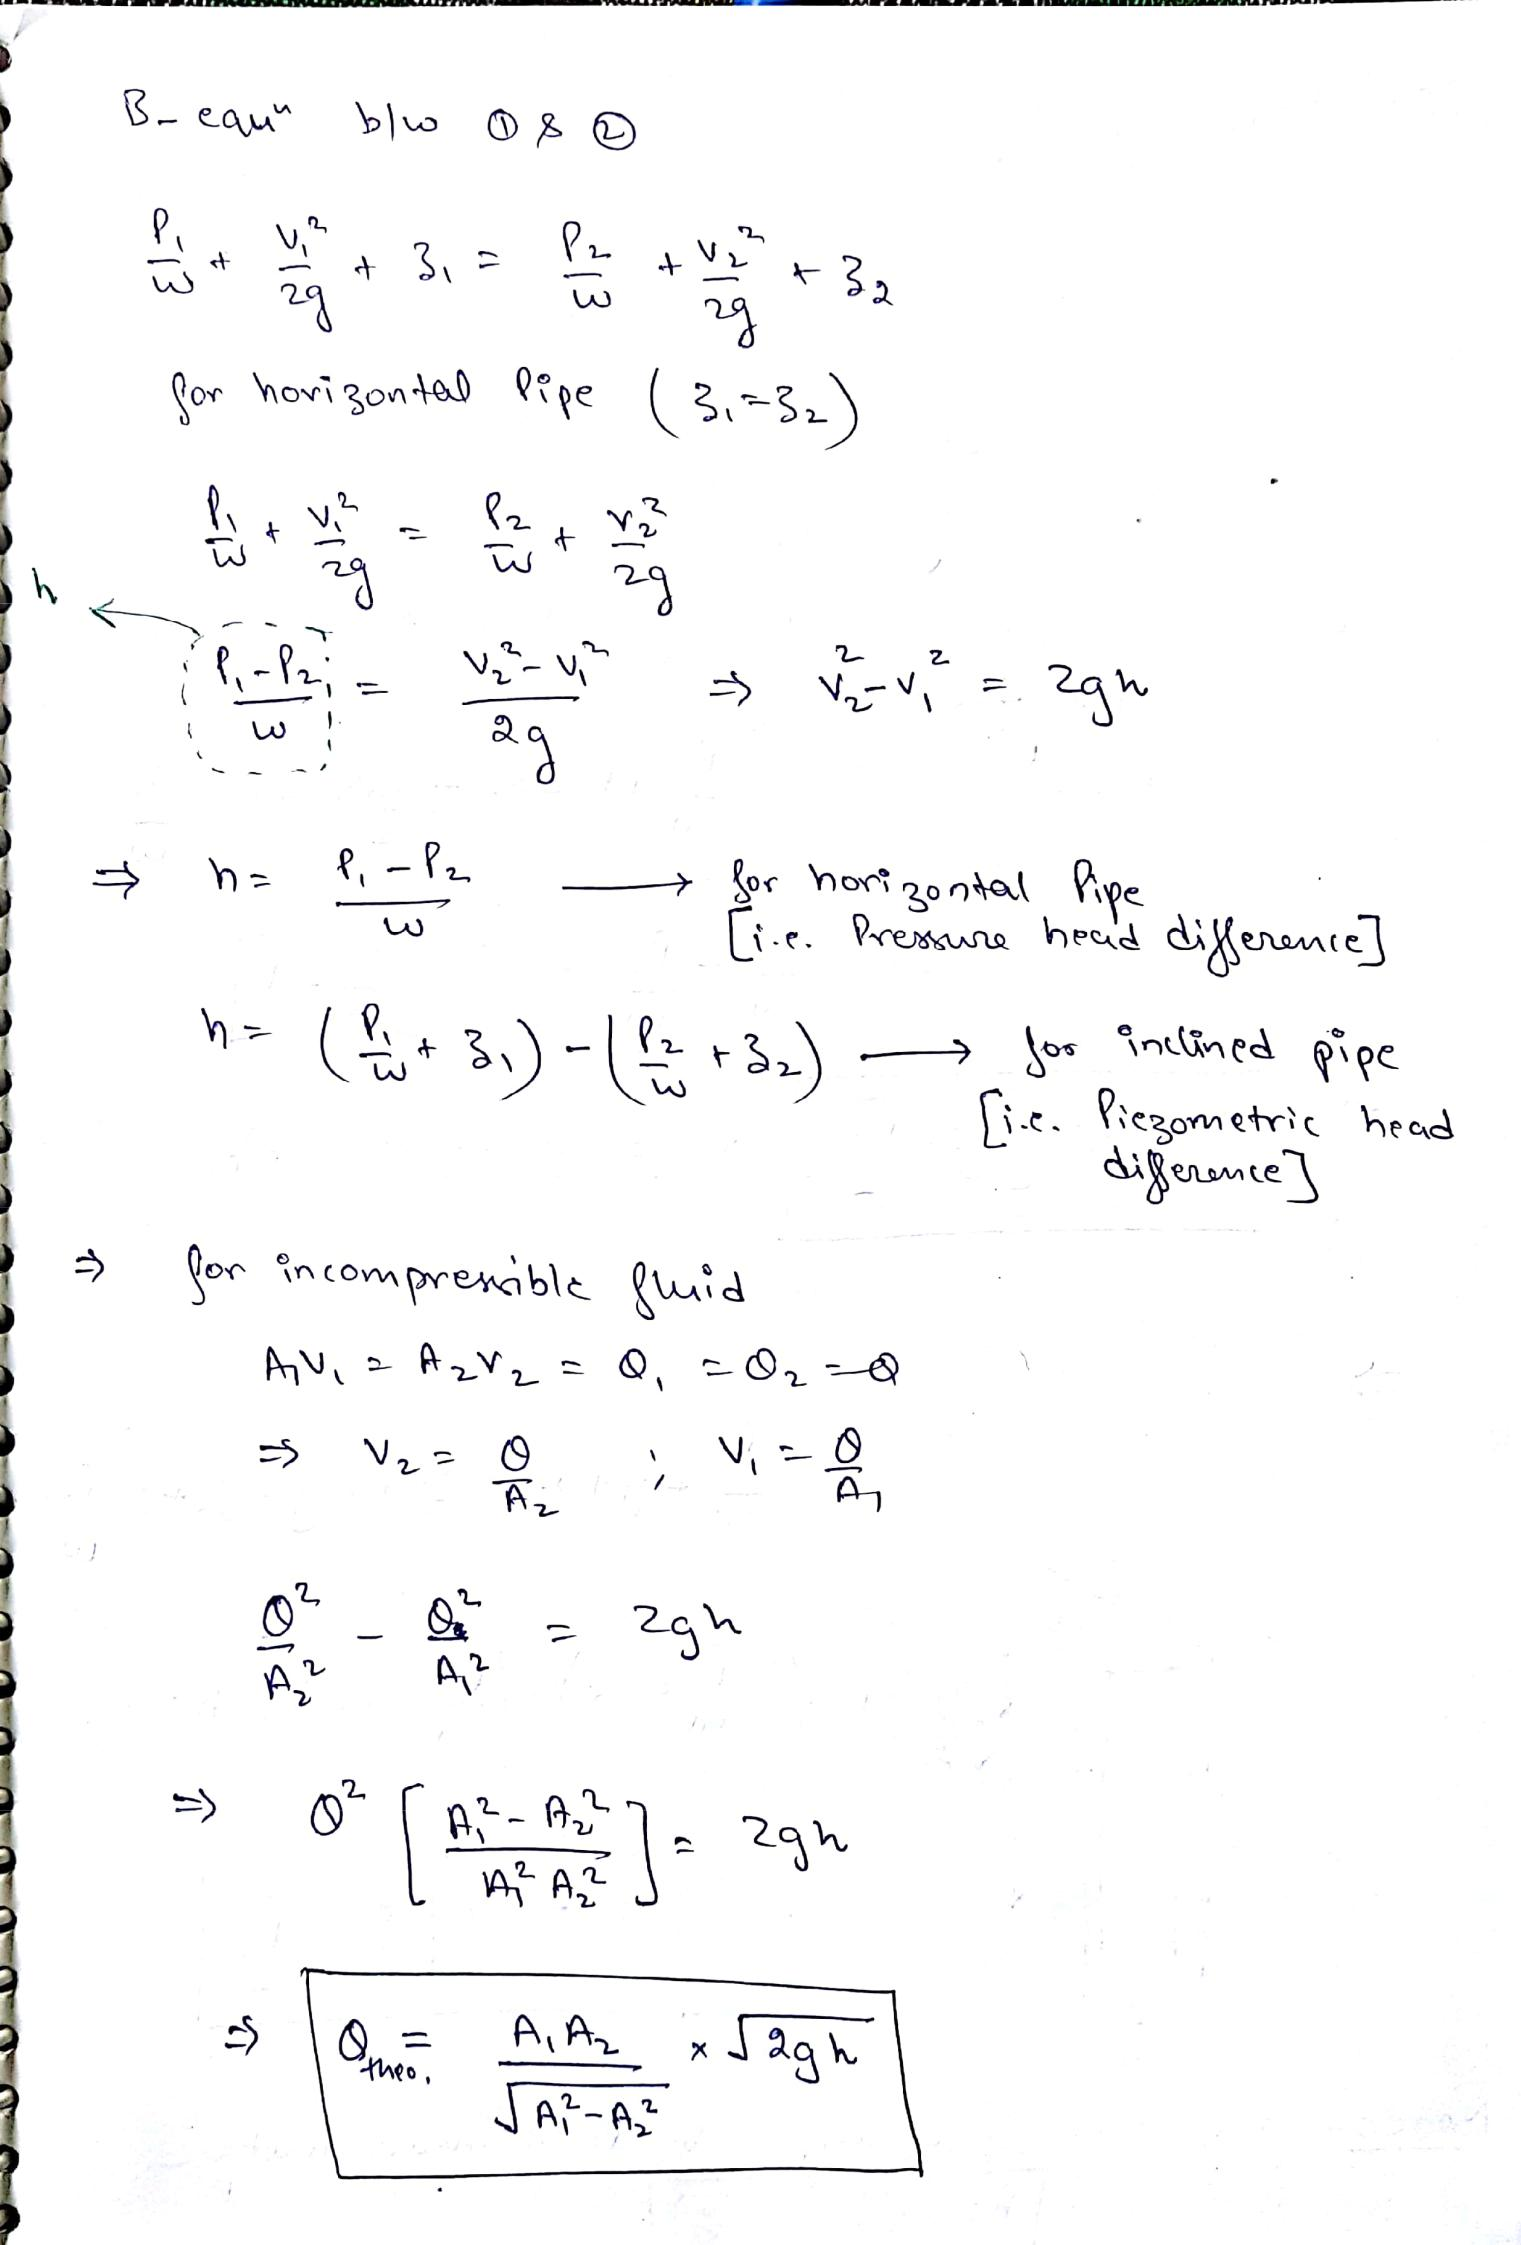 B-equⁿ b/w ① & ②
P₁/w + V₁²/2g + z₁ = P₂/w + V₂²/2g + z₂
for horizontal Pipe (z₁=z₂)
P₁/w + V₁²/2g = P₂/w + V₂²/2g
h ← (P₁-P₂)/w = (V₂²-V₁²)/2g ⇒ V₂²-V₁² = 2gh
⇒ h = (P₁-P₂)/w → for horizontal Pipe
[i.e. Pressure head difference]
h = (P₁/w + z₁) - (P₂/w + z₂) → for inclined pipe
[i.e. Piezometric head
difference]
⇒ for incompressible fluid
A₁V₁ = A₂V₂ = Q₁ = Q₂ = Q
⇒ V₂ = Q/A₂ ; V₁ = Q/A₁
Q²/A₂² - Q²/A₁² = 2gh
⇒ Q² [(A₁²-A₂²)/(A₁² A₂²)] = 2gh
⇒ Q_theo. = A₁A₂/√(A₁²-A₂²) × √(2gh)